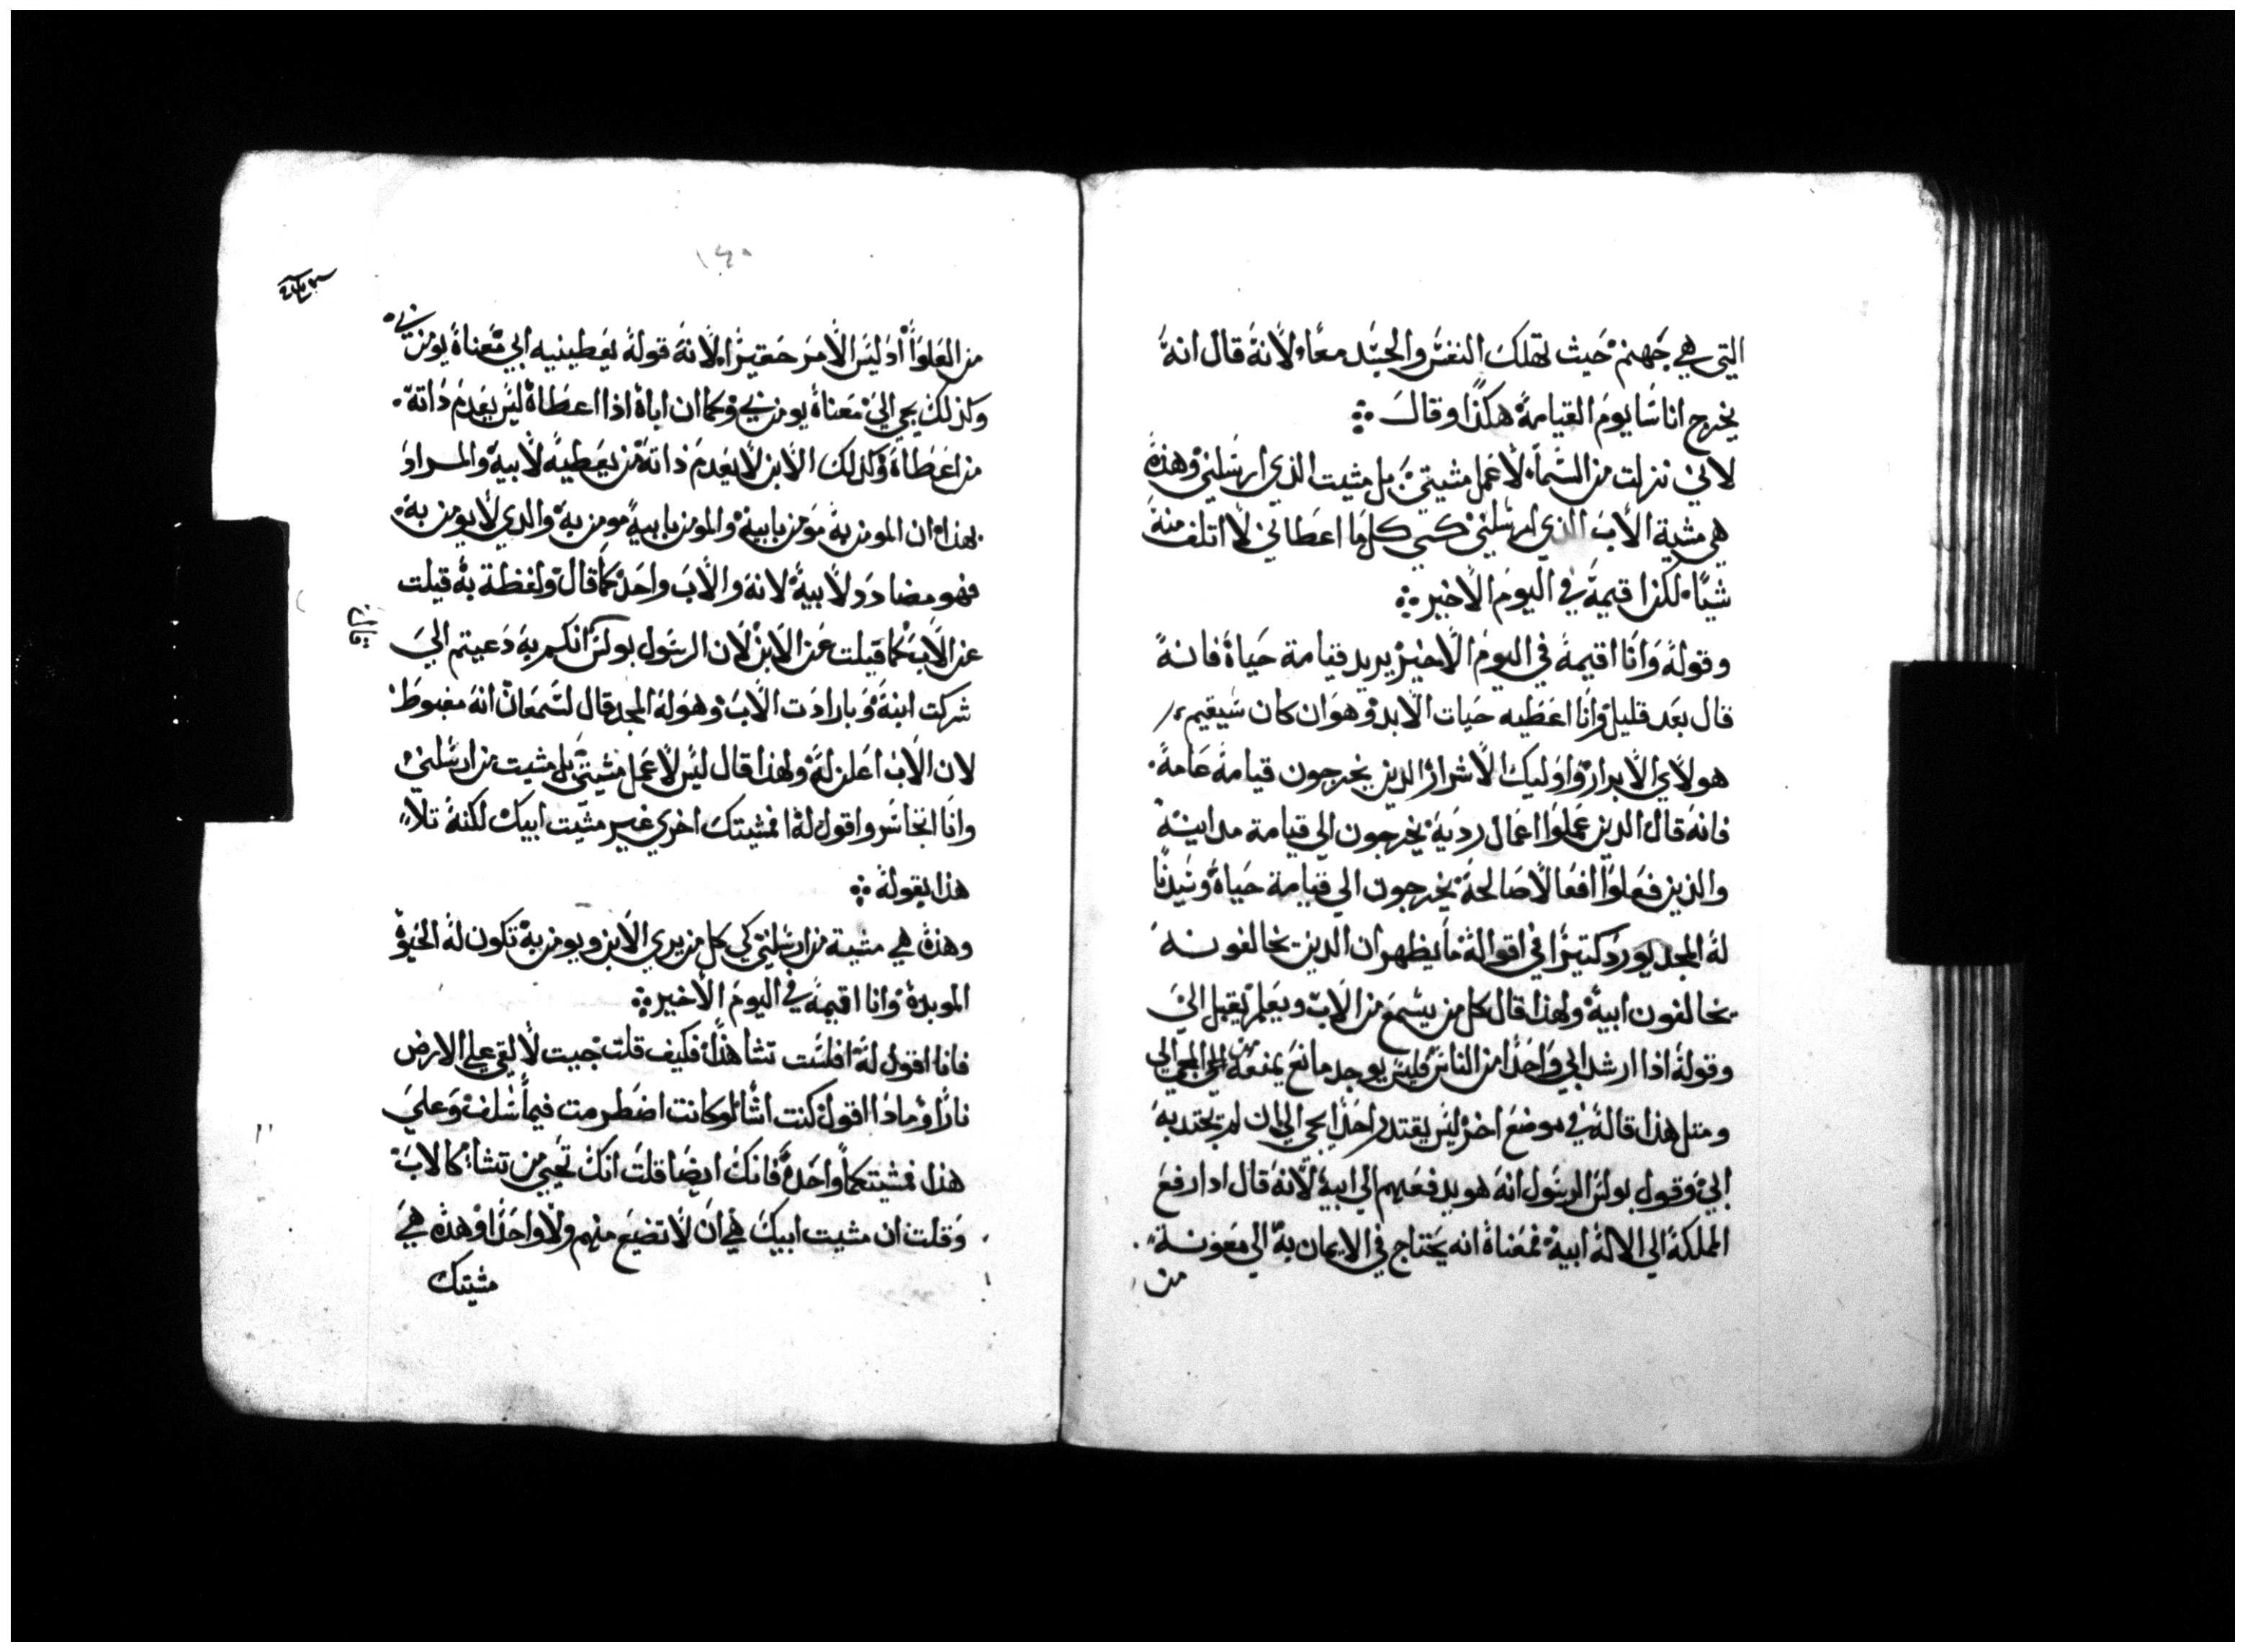 التي هي جهنم حيث تهلك النفس والجسد معًا لانه قال انه
يخرج اناسا يوم القيامة هكذا وقال
لاني نزلت من السما لاعمل مشيتي بل مشيت الذي ارسلني وهذه
هي مشية الاب الذي ارسلني كي كلما اعطاني لا اتلف منه
شيًا لكن اقيمه في اليوم الاخير
وقوله وانا اقيمه في اليوم الاخير يريد قيامة حياة فانه
قال بعد قليل وانا اعطيه حيات الابد وهو ان كان سيقيم
هولاي الابرار واوليك الاشرار الذين يخرجون قيامة عامة
فانه قال الذين عملوا اعمال ردية يخرجون الي قيامة مداينة
والذين فعلوا افعالا صالحة يخرجون الي قيامة حياة وسيدنا
له المجد يورد كتيرا في اقواله ما يظهر ان الدين يخالفونه
يخالفون ابيه ولهذا قال كل من يسمع من الاب ويعلم يقبل الي
وقوله اذا ارشد ابي واحدا من الناس فليس يوجد مانع يمنعه من المجي الي
ومتل هذا قاله في موضع اخر ليس يقتدر احدا يجي الي ان لم يجتدبه
ابي وقول بولس الرسول انه هو يدفعهم الي ابيه لانه قال ادا رفع
المملكة الي الاله ابيه فمعناه انه يحتاج في الايمان به الي معونة
من
١٤٠
من العلو اذ ليس الامر حقيرا لانه قوله يعطينيه ابي معناه يومن بي
وكذلك يجي الي معناه يومن بي وكما ان اباه اذا اعطاه ليس يعدم ذاته
من اعطاه وكذلك الابن لا يعدم ذاته من يعطيه لابيه والمراد
بهذا ان المومن به مومن بابيه والمومن بابيه مومن به والدي لا يومن به
فهو مضادد لابيه لانه والاب واحد كما قال ولفظة به قيلت
عن الاب كما قيلت عن الابن لان الرسول بولس انكم به دعيتم الي
شركت ابنه وبارادت الاب وهو له المجد قال لسمعان انه مغبوط
لان الاب اعلن له ولهذا قال ليس لاعمل مشيتي بل مشيت من ارسلني
وانا اتجاسر واقول له افمشيتك اخري غير مشيت ابيك لكنه تلا
هذا بقوله
وهذه هي مشية من ارسلني كي كل من يري الابن ويومن به تكون له الحيوة
الموبدة وانا اقيمه في اليوم الاخير
فانا اقول له افلست تشا هذا فكيف قلت جيت لالقي علي الارض
نارا وماذا اقول كنت اشا لو كانت اضطرمت فيما سلف وعلي
هذا فمشيتكما واحدة فانك ايضا قلت انك تحيي من تشا كالاب
وقلت ان مشيت ابيك هي ان لا تضيع منهم ولا واحدا وهذه هي
مشيتك